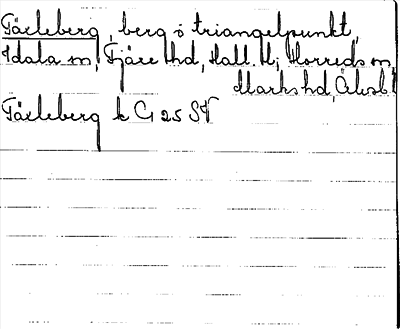 Fåxleberg, berg o triangelpunkt,
Idala sn, Fjäre hd, Hall. l; Horreds sn,
Marks hd, Älvsb. l
Fåxleberg k G 25 SV